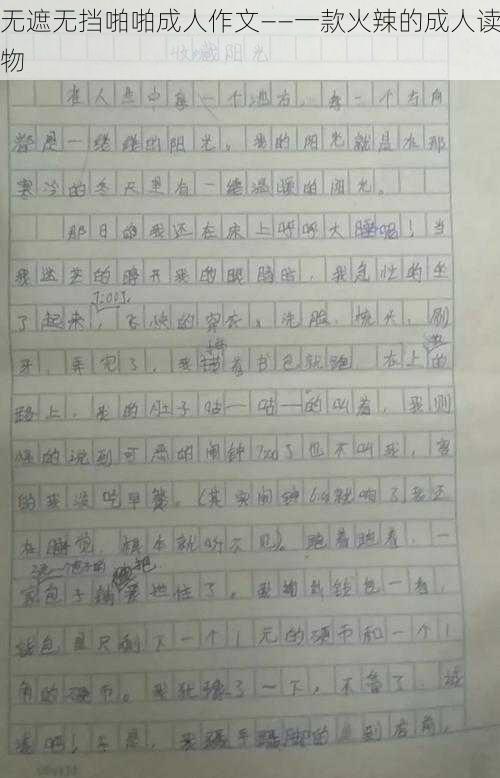 无遮无挡啪啪成人作文——一款火辣的成人读
物
收藏阳光
在人生中每一个地方,每一个方向
都是一缕缕的阳光。我的阳光就是在那
寒冷的冬天里有一缕温暖的阳光。
那日的我还在床上呼呼大睡呢!当
我迷茫的睁开我的眼睛时,我急忙的坐
了起来,飞快的穿衣,洗脸,梳头,刷
牙,弄完了,我背着书包就跑,在上的
路上,我的肚子咕一咕一的叫着,我
的说到可恶的闹钟7:00了也不叫我,害
的我没吃早餐。(其实闹钟6:00就响了我还
在睡觉,根本就听不见)。跑着跑着,一
家包子铺
住了。我掏出钱包一看,
钱包里只剩下一个1元的硬币和一个1
角的硬币。我犹豫了一下,不管了,
吧!于是,我
的走到店前,